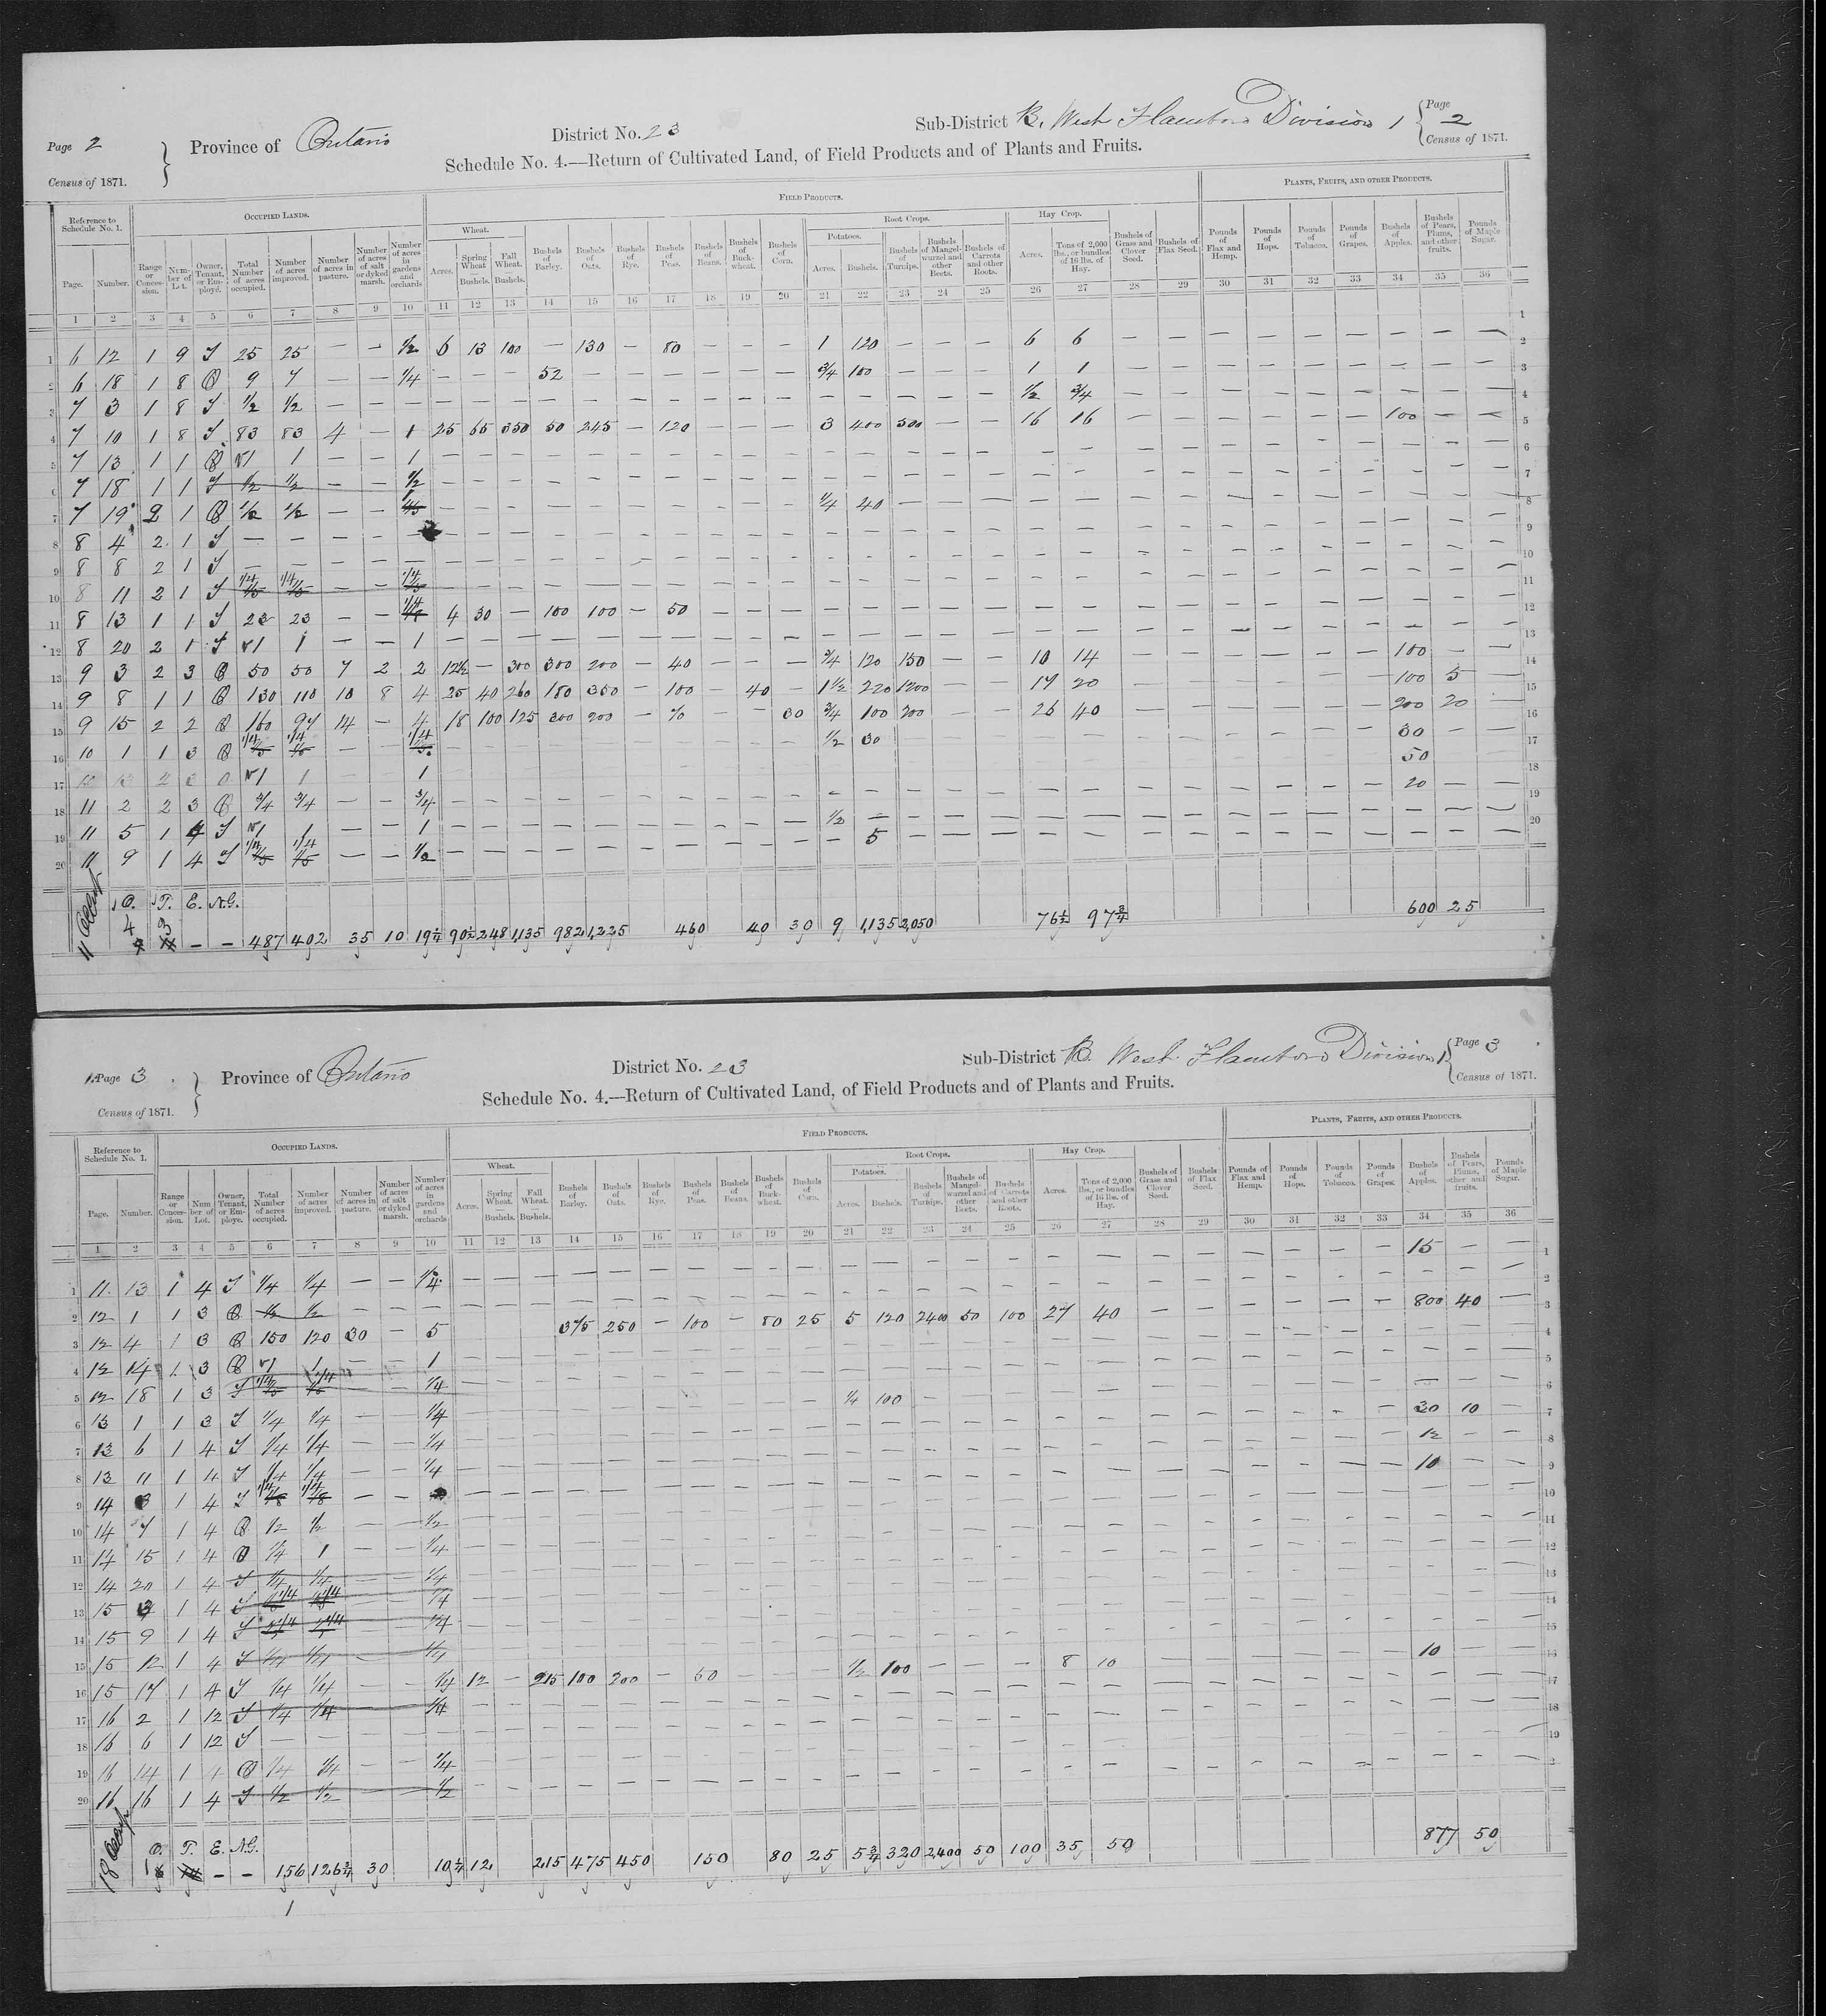 Page 2
Census of 1871.
Province of Ontario
District No. 23
Sub-District B. West Flamboro Division 1
Page 2
Census of 1871.
Schedule No. 4.—Return of Cultivated Land, of Field Products and of Plants and Fruits.
Reference to Schedule No. 1. OCCUPIED LANDS. FIELD PRODUCTS. PLANTS, FRUITS, AND OTHER PRODUCTS.
Wheat. Root Crops. Potatoes. Hay Crop.
Page. Number. Range or Concession. Number of Lot. Owner, Tenant, or Employé. Total Number of acres occupied. Number of acres improved. Number of acres in pasture. Number of acres of salt or dyked marsh. Number of acres in gardens and orchards Acres. Spring Wheat — Bushels. Fall Wheat. — Bushels. Bushels of Barley. Bushels of Oats. Bushels of Rye. Bushels of Peas. Bushels of Beans. Bushels of Buckwheat. Bushels of Corn. Acres. Bushels. Bushels of Turnips. Bushels of Mangel-wurzel and other Beets. Bushels of Carrots and other Roots. Acres. Tons of 2,000 lbs., or bundles of 16 lbs. of Hay. Bushels of Grass and Clover Seed. Bushels of Flax Seed. Pounds of Flax and Hemp. Pounds of Hops. Pounds of Tobacco. Pounds of Grapes. Bushels of Apples. Bushels of Pears, Plums, and other fruits. Pounds of Maple Sugar.
1 2 3 4 5 6 7 8 9 10 11 12 13 14 15 16 17 18 19 20 21 22 23 24 25 26 27 28 29 30 31 32 33 34 35 36
1 6 12 1 9 T 25 25 — — 1/2 6 13 100 — 130 — 80 — — — 1 120 — — — 6 6 — — — — — — — — —
2 6 18 1 8 O 9 7 — — 1/4 — — — 52 — — — — — — 3/4 100 — — 1 1 — — — — — — — — —
3 7 3 1 8 T 1/2 1/2 — — — — — — — — — — — — — — — — — — 1/2 3/4 — — — — — — — — —
4 7 10 1 8 T 83 83 4 — 1 25 65 350 50 245 — 120 — — — 3 400 500 — — 16 16 — — — — — — 100 — —
5 7 13 1 1 O 1 1 — — 1
6 7 18 1 1 T 1/2 1/2 — — 1/2
7 7 19 2 1 O 1/2 1/2 — — 1/4 40
8 8 4 2 1 T — — — —
9 8 8 2 1 T — — — —
10 8 11 2 1 T 1/4 1/4 — — 1/4
11 8 13 1 1 T 23 23 — — 1/4 4 30 — 100 100 — 50 — — —
12 8 20 2 1 T 1 1 — — 1
13 9 3 2 3 O 50 50 7 2 2 12½ — 300 300 200 — 40 — — — 3/4 120 150 — — 10 14 — — — — — — 100 — —
14 9 8 1 1 O 130 110 10 8 4 25 40 260 180 350 — 100 — 40 — 1½ 220 1200 — — 17 20 — — — — — — 100 5 —
15 9 15 2 2 O 160 97 14 — 4 18 100 125 300 200 — 70 — — 30 3/4 100 200 — — 26 40 — — — — — — 200 20 —
16 10 1 1 3 O 1/4 1/4 — — 1/4 1/2 30 30 — —
17 1 1 — 1 50
18 11 2 2 3 O 3/4 3/4 — — 3/4 20 — —
19 11 5 1 4 T 1 1 — — 1 1/2
20 11 9 1 4 T 1/4 1/4 — — 1/2 5
11 O. T. E. N.G.
4 3 — — 487 402 35 10 19¼ 90½ 248 1,135 982 1,225 460 40 30 9 1,135 2,050 76½ 97¾ 600 25
Page 3
Census of 1871.
Province of Ontario
District No. 23
Sub-District B. West Flamboro Division 1
Page 3
Census of 1871.
Schedule No. 4.—Return of Cultivated Land, of Field Products and of Plants and Fruits.
Reference to Schedule No. 1. OCCUPIED LANDS. FIELD PRODUCTS. PLANTS, FRUITS, AND OTHER PRODUCTS.
Wheat. Root Crops. Potatoes. Hay Crop.
Page. Number. Range or Concession. Number of Lot. Owner, Tenant, or Employe. Total Number of acres occupied. Number of acres improved. Number of acres in pasture. Number of acres of salt or dyked marsh. Number of acres in gardens and orchards Acres. Spring Wheat. — Bushels. Fall Wheat. — Bushels. Bushels of Barley. Bushels of Oats. Bushels of Rye. Bushels of Peas. Bushels of Beans. Bushels of Buckwheat. Bushels of Corn. Acres. Bushels. Bushels of Turnips. Bushels of Mangel-wurzel and other Beets. Bushels of Carrots and other Roots. Acres. Tons of 2,000 lbs., or bundles of 16 lbs. of Hay. Bushels of Grass and Clover Seed. Bushels of Flax Seed. Pounds of Flax and Hemp. Pounds of Hops. Pounds of Tobacco. Pounds of Grapes. Bushels of Apples. Bushels of Pears, Plums, other and fruits. Pounds of Maple Sugar.
1 2 3 4 5 6 7 8 9 10 11 12 13 14 15 16 17 18 19 20 21 22 23 24 25 26 27 28 29 30 31 32 33 34 35 36
1 11 13 1 4 T 1/4 1/4 — — 1/4 15 — —
2 12 1 1 3 O 1/2 1/2 — — —
3 12 4 1 3 O 150 120 30 — 5 375 250 — 100 — 80 25 5 120 2400 50 100 27 40 — — — — — — 800 40 —
4 12 14 1 3 O 1 1 — — 1
5 12 18 1 3 T 1/4 1/4 — — 1/4
6 13 1 1 3 T 1/4 1/4 — — 1/4 1/4 100 — 30 10 —
7 13 6 1 4 T 1/4 1/4 — — 1/4 12 — —
8 13 11 1 4 T 1/4 1/4 — — 1/4 10 — —
9 14 3 1 4 T 1/4 1/4 — —
10 14 7 1 4 O 1/2 1/2 — — 1/2
11 14 15 1 4 O 1 — — 1/4
12 14 20 1 4 T 1/4 1/4 — — 1/4
13 15 1 4 T 1/4 1/4 — — 1/4
14 15 9 1 4 T 1/4 1/4 — — 1/4
15 15 12 1 4 T 1/4 1/4 — — 1/4
16 15 17 1 4 T 1/4 1/4 — — 1/4 12 — 215 100 200 — 50 — — — 1/2 100 — — — 8 10 10 — —
17 16 2 1 12 T 1/4 1/4 — — 1/4
18 16 6 1 12 T — —
19 16 14 1 4 O 1/4 1/4 — — 1/4
20 16 16 1 4 T 1/2 1/2 — — 1/2
18 O. T. E. N.G.
— — 156 126¾ 30 10¼ 12 215 475 450 150 80 25 5¾ 320 2,400 50 100 35 50 877 50
1